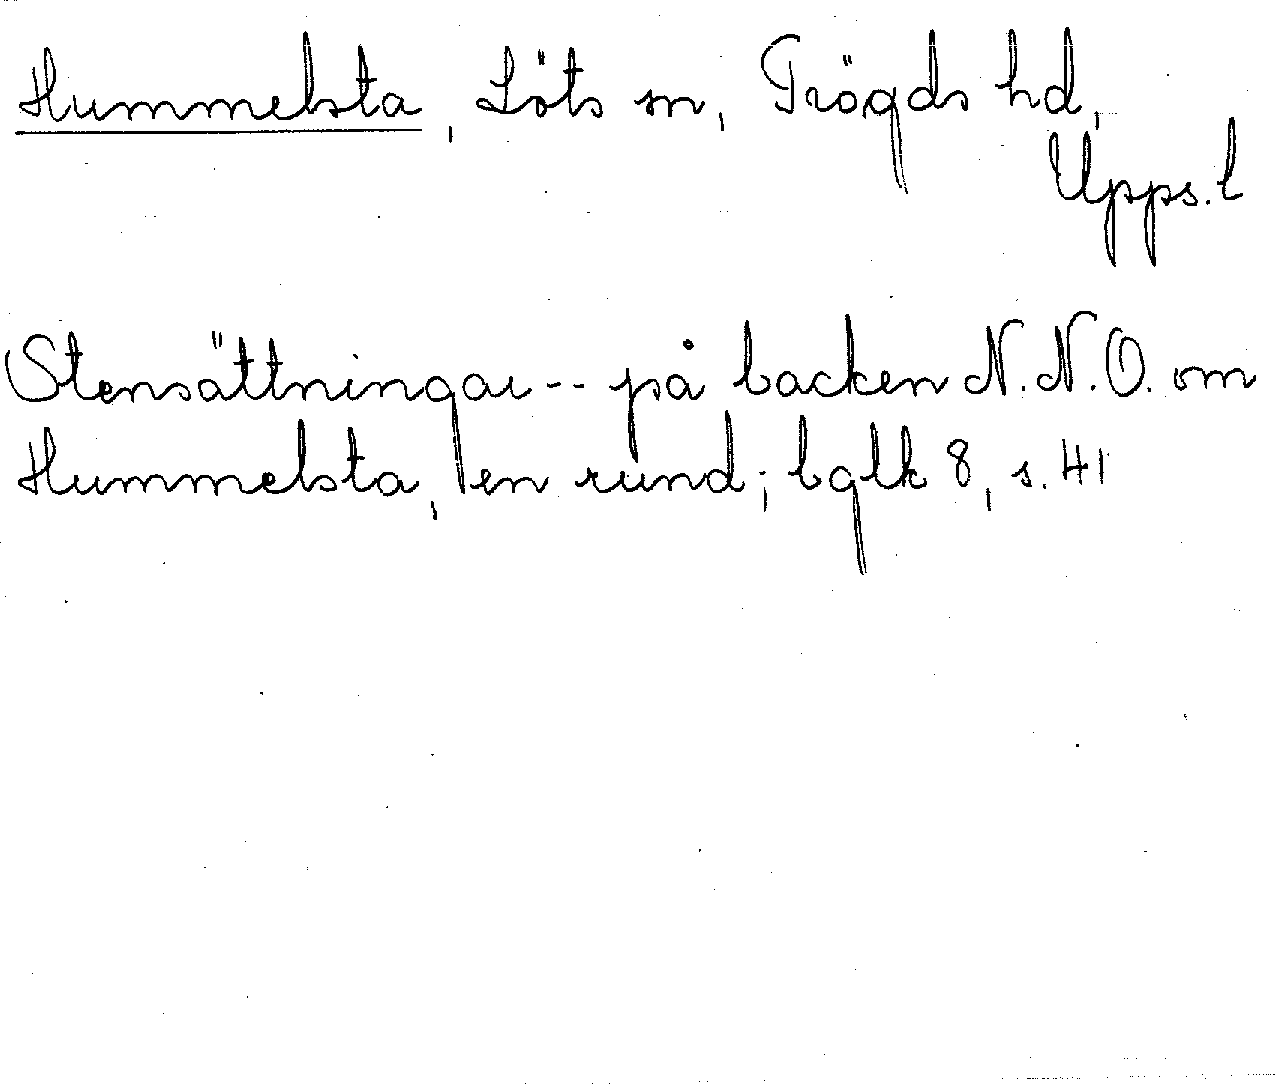 Hummelsta, Löts sn, Trögds hd,
Upps. l
Stensättningar -- på backen N.N.O. om
Hummelsta, en rund; bglk 8, s. 41